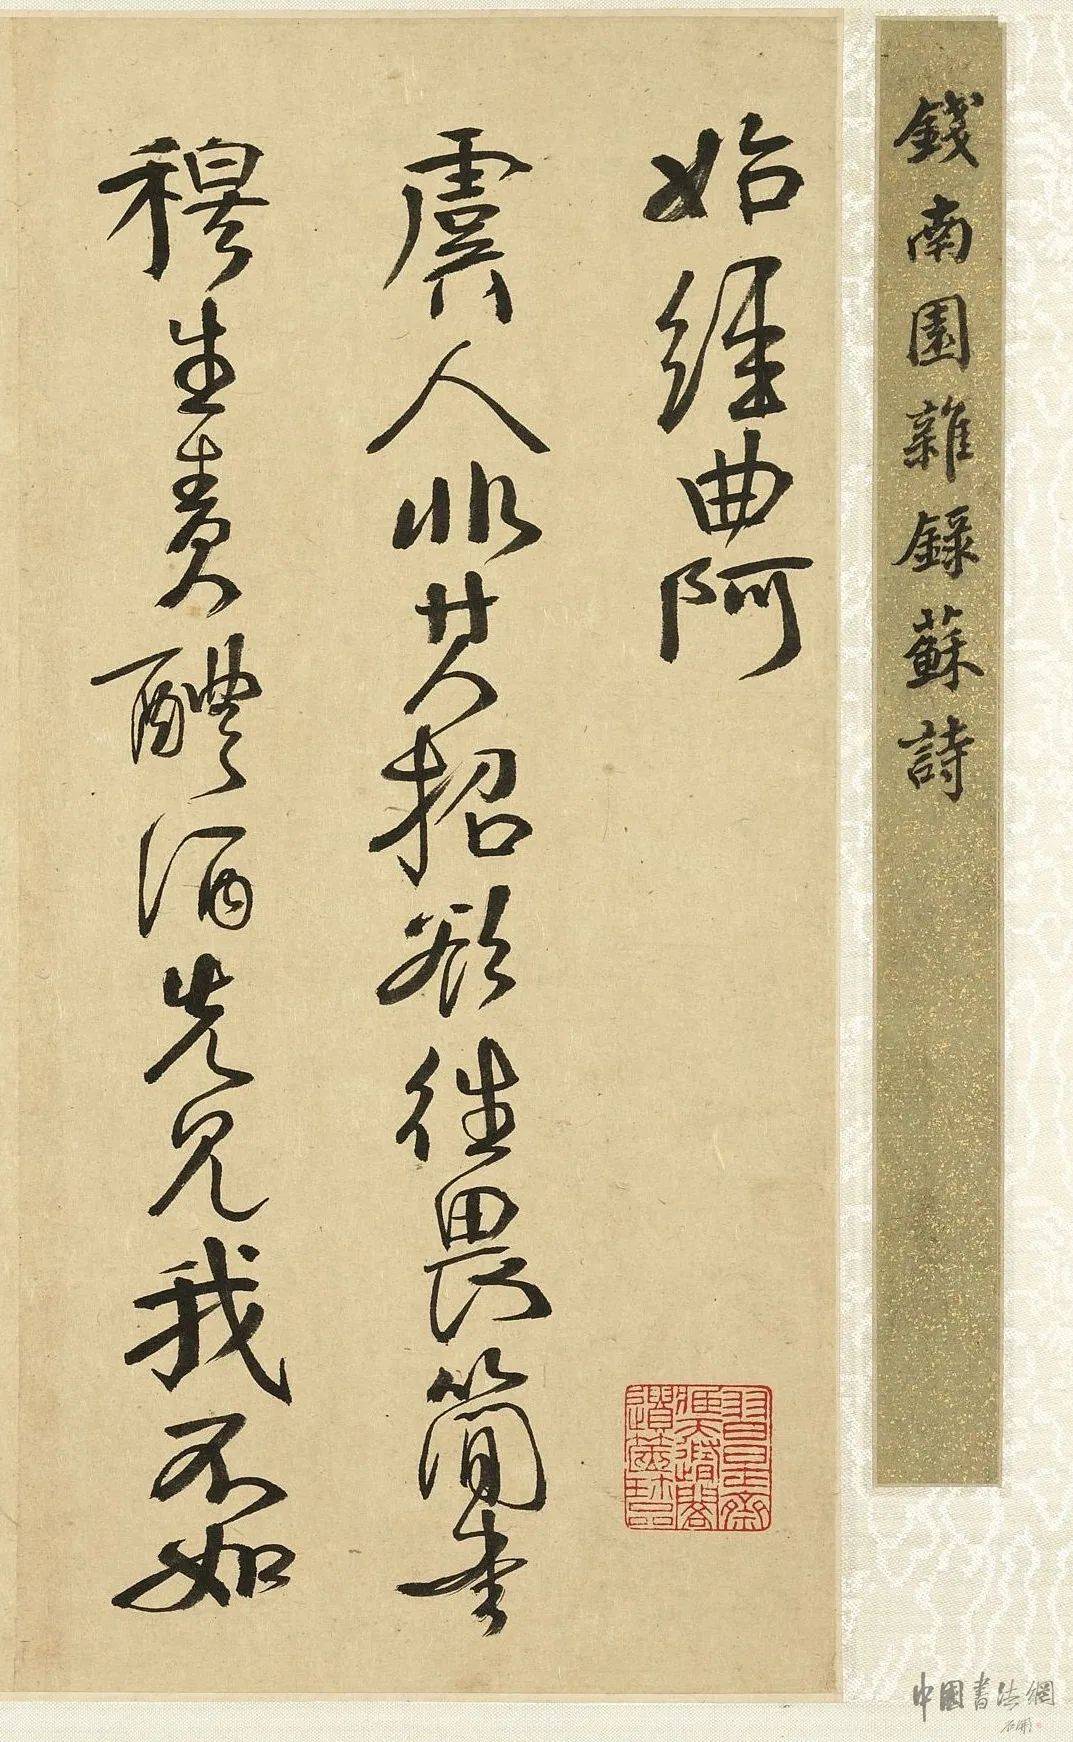 錢南園雜錄蘇詩
始經曲阿
虞人非其招欲往畏簡書
穆生責醴酒先見我不如
中國書法網